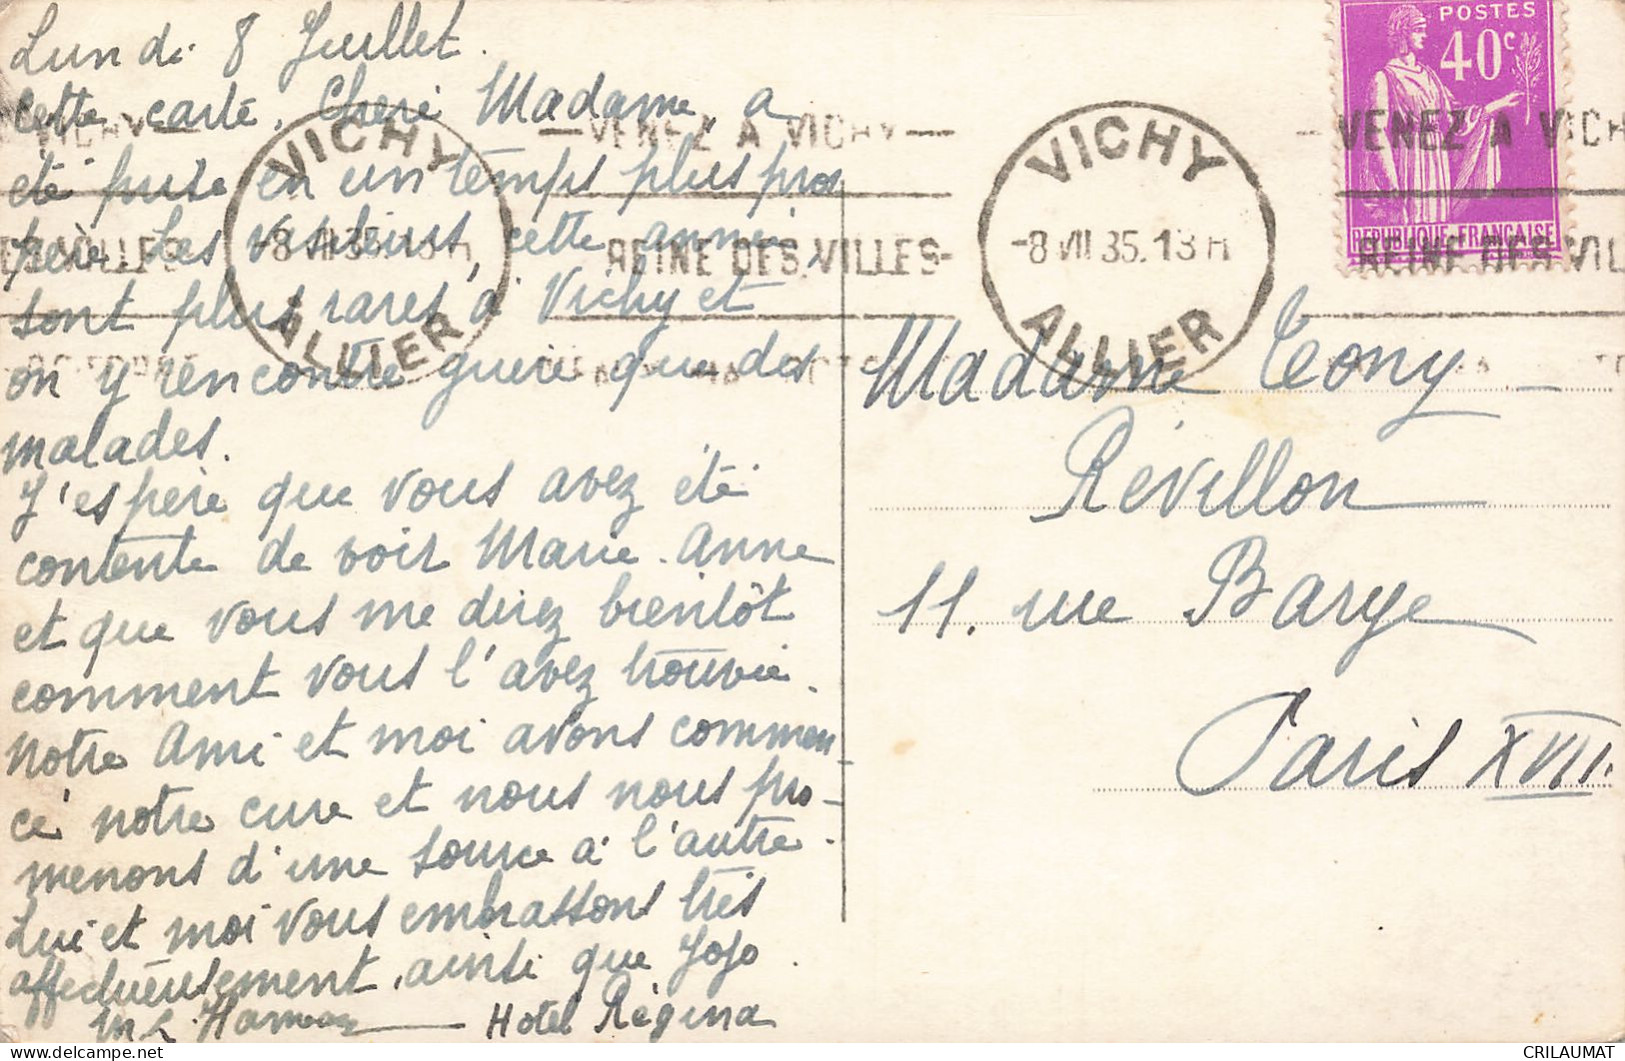 Lundi 8 Juillet.
Cette carte, Chère Madame, a
été prise en un temps plus pros
père. Les visiteurs, cette année,
sont plus rares à Vichy et
on y rencontre guère que des
malades.
J'espère que vous avez été
contente de voir Marie-Anne
et que vous me direz bientôt
comment vous l'avez trouvée.
Notre Ami et moi avons commen-
cé notre cure et nous nous pro-
menons d'une source à l'autre.
Lui et moi vous embrassons très
affectueusement, ainsi que Jojo.
Hotel Régina
VICHY
-8 VII 35.13H
ALLIER
—VENEZ A VICHY—
REINE DES VILLES-
VICHY
-8 VII 35.13H
ALLIER
POSTES
40c
REPUBLIQUE FRANÇAISE
VENEZ A VICH
REINE DES VIL
Madame Tony
Révillon
11. rue Barye
Paris XVII.
CRILAUMAT